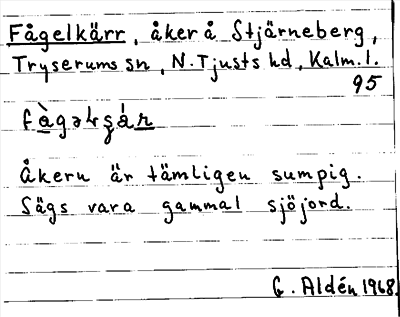 Fågelkärr, åker å Stjärneberg,
Tryserums sn, N. Tjusts hd, Kalm. l.
95
Åkern är tämligen sumpig.
Sägs vara gammal sjöjord.
G. Aldén 1968.